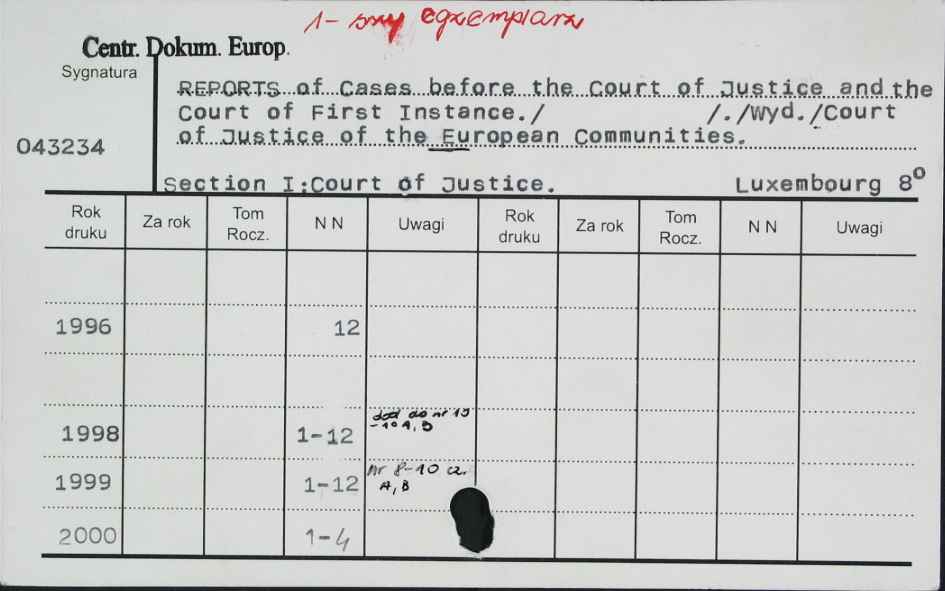 1-szy egzemplarz
Centr. Dokum. Europ.
Sygnatura
043234
REPORTS of Cases before the Court of Justice and the
Court of First Instance./ /./Wyd./Court
of Justice of the European Communities.
Section I:Court of Justice. Luxembourg 8º
Rok druku Za rok Tom Rocz. N N Uwagi Rok druku Za rok Tom Rocz. N N Uwagi
1996 12
1998 1-12 dod do nr
A, B
1999 1-12 nr 8-10 cz.
A, B
2000 1-4